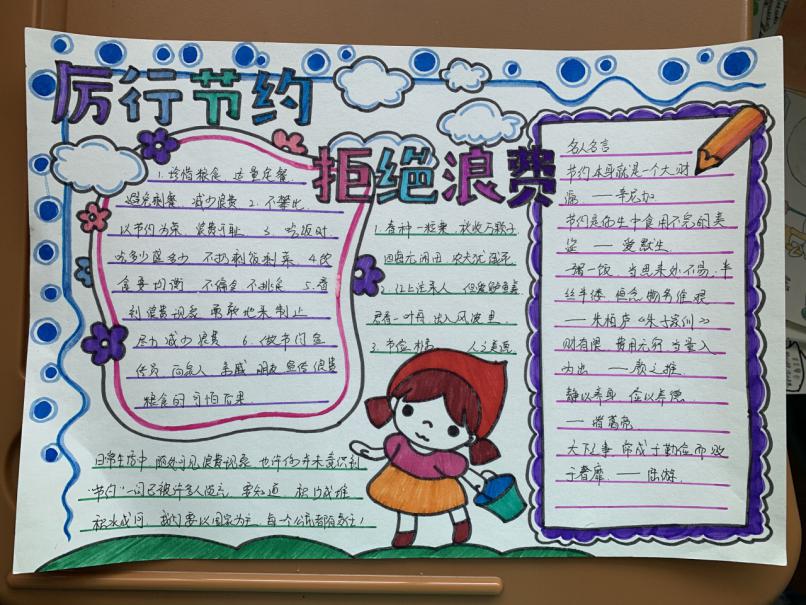 厉行节约
拒绝浪费
1.珍惜粮食 适量定餐
避免剩餐 减少浪费 2.不攀比
以节约为荣 浪费可耻 3 吃饭时
吃多少盛多少 不扔剩饭剩菜 4.饮
食要均衡 不偏食不挑食 5.看
到浪费现象 勇敢地来制止
尽力减少浪费 6.做节约宣
传员 向家人 亲戚 朋友宣传浪费
粮食的可怕后果
1.春种一粒粟 秋收万颗子
四海无闲田 农夫犹饿死
2.江上往来人 但爱鲈鱼美
君看一叶舟 出入风波里
3 节俭 人之美德
日常生活中 随处可见浪费现象 也许你并未意识到
"节约"一词已被许多人 要知道 积沙成堆
积水成河 我们要以国家为主 每一个公民都有责任!
名人名言
节约本身就是一个大财
源 ——辛尼加
节约是穷人生中食用不完的美
筵 —— 爱默生
一粥一饭 当思来处不易 半
丝半缕 恒念物力维艰
——朱柏庐《朱子家训》
财有限 费用无穷 当量入
为出 ——颜之推
静以养身 俭以养德
—— 诸葛亮
天下之事 常成于勤俭而败
于奢靡 ——陆游